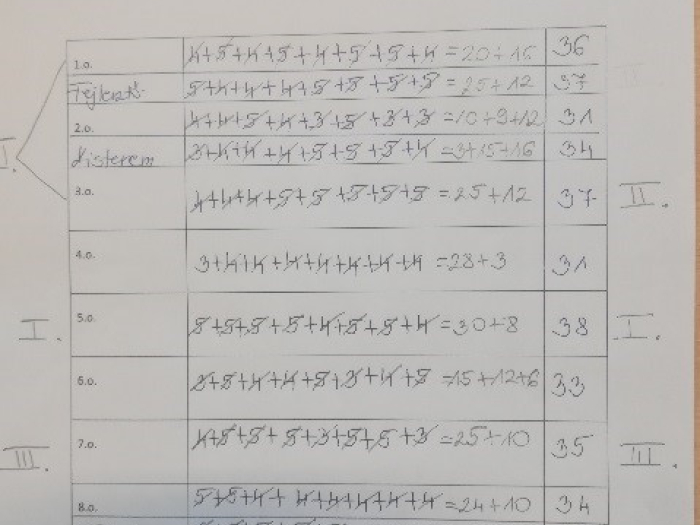 1.o. 4+5+4+5+4+5+5+4=20+16 36
Fejleszt. 5+4+4+4+5+5+5+5=25+12 37
2.o. 4+4+5+4+3+5+3+3=10+9+12 31
Kisterem 3+4+4+4+5+5+5+4=3+15+16 34
3.o. 4+4+4+5+5+5+5+5=25+12 37 II.
4.o. 3+4+4+4+4+4+4+4=28+3 31
I. 5.o. 5+5+5+5+4+5+5+4=30+8 38 I.
6.o. 3+5+4+4+5+3+4+5=15+12+6 33
III. 7.o. 4+5+5+5+3+5+5+3=25+10 35 III.
8.o. 5+5+4+4+4+4+4+4=24+10 34